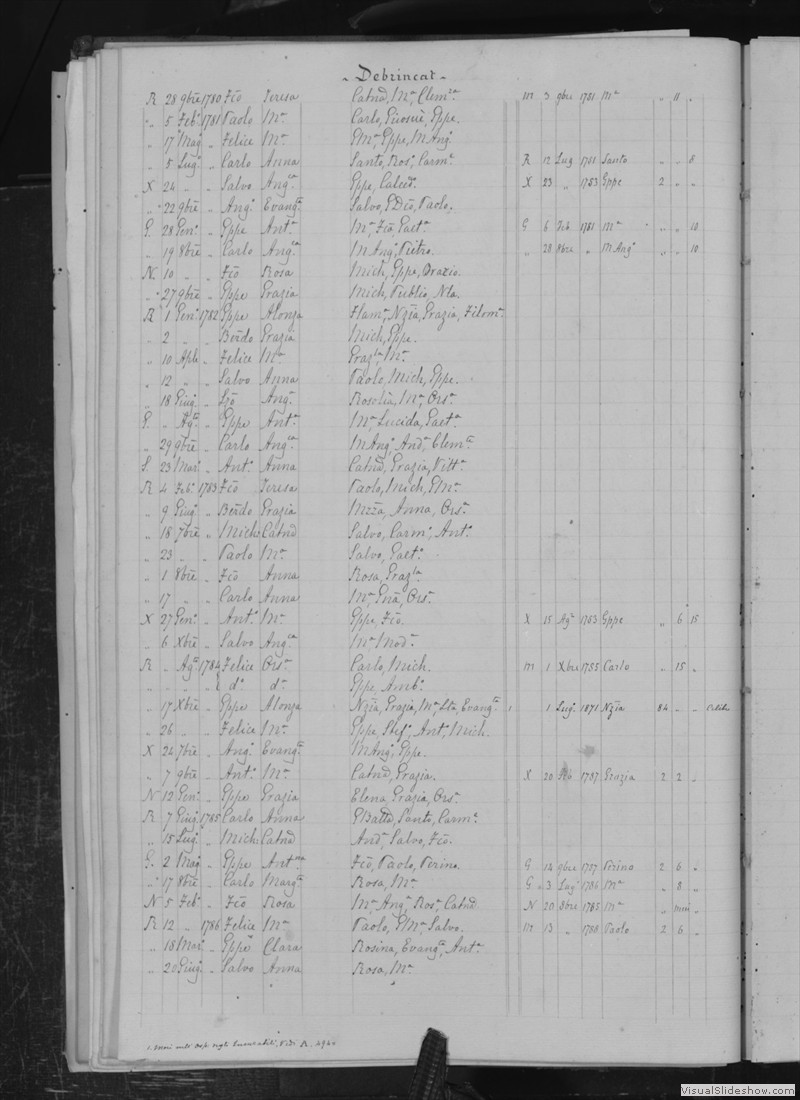 Debrincat
R 28 9bre 1780 Fco Teresa Catnd, Ma Clemza m 3 9bre 1781 Ma " 11 "
" 5 Feb. 1781 Paolo Ma Carlo, Giosuè, Gppe.
" 17 Mag. " Felice Ma GMa, Gppe, MAng.
" 5 Lug. " Carlo Anna Santo, Ros, Carm. R 12 Lug 1781 Santo " " 8
X 24 " " Salvo Angca Gppe, Calced. X 23 " 1783 Gppe 2 " "
" 22 9bre " Ang. Evanga Salvo, GDco, Paolo.
G. 28 Gen. " Gppe Anta Ma Fco, Gaeta G 6 Feb. 1781 Ma " " 10
" 19 8bre " Carlo Angca MAng, Pietro. " 28 8bre " MAng " " 10
N. 10 " " Fco Rosa Mich, Gppe, Orazio.
" 27 9bre " Gppe Grazia Mich, Publio, Nla.
R 1 Gen. 1782 Gppe Alonza Flama, Nzia, Grazia, Filoma
" 2 " " Berdo Grazia Mich, Gppe.
" 10 Aple " Felice Ma Grazia Ma
" 12 " " Salvo Anna Paolo, Mich, Gppe.
" 18 Giug. " Fco Anga Rosolia, Ma, Orsa
G. " Ago " Gppe Anta Ma Lucida, Gaeta
" 29 9bre " Carlo Angca MAng, And, Clema
S. 23 Mar. " Anto Anna Catnd, Grazia, Vitta
R 4 Feb. 1783 Fco Teresa Paolo, Mich, GMa
" 9 Giug. " Berdo Grazia Anna, Orsa
" 18 7bre " Mich: Catnd Salvo, Carm, Anto
" 23 " " Paolo Ma Salvo, Gaeta
" 1 8bre " Fco Anna Rosa, Grazia
" 17 " " Carlo Anna Ma Gna, Orsa
X 27 Gen. " Anto Ma Gppe, Fco. X 15 Ago 1783 Gppe " 6 15
" 6 Xbre " Salvo Angca Ma Moda
R " Ago 1784 Felice Orsa Carlo, Mich. m 1 Xbre 1785 Carlo " 15 "
" " " " do do Gppe, Amb.
" 17 Xbre " Gppe Alonza Nzia, Grazia, Ma Evanga 1 1 Lug. 1871 Nzia 84 " "
" 26 " " Felice Ma Gppe, Stef, Ant, Mich.
X 22 7bre " Ang. Evanga MAng, Gppe.
" 7 9bre " Anto Ma Catnd, Grazia. X 20 Feb 1787 Grazia 2 2 "
N 12 Gen. " Gppe Grazia Elena, Grazia, Orsa
R 7 Giug 1785 Carlo Anna GBatta, Santo, Carma
" 15 Lug. " Mich: Catnd And, Salvo, Fco.
G. 2 Mag. " Gppe Anta Fco, Paolo, Perino. G 14 9bre 1787 Perino 2 6 "
" 17 8bre " Carlo Marga Rosa, Ma G 3 Lug 1786 Ma " 8 "
N 5 Feb. " Fco Rosa Ma Ang, Ros, Catnd. N 20 8bre 1785 Ma "
R 12 " 1786 Felice Ma Paolo, GMa, Salvo. m 13 " 1788 Paolo 2 6 "
" 18 Mar. " Gppe Clara Rosina, Evanga, Anta
" 20 Giug. " Salvo Anna Rosa, Ma
VisualSlideshow.com